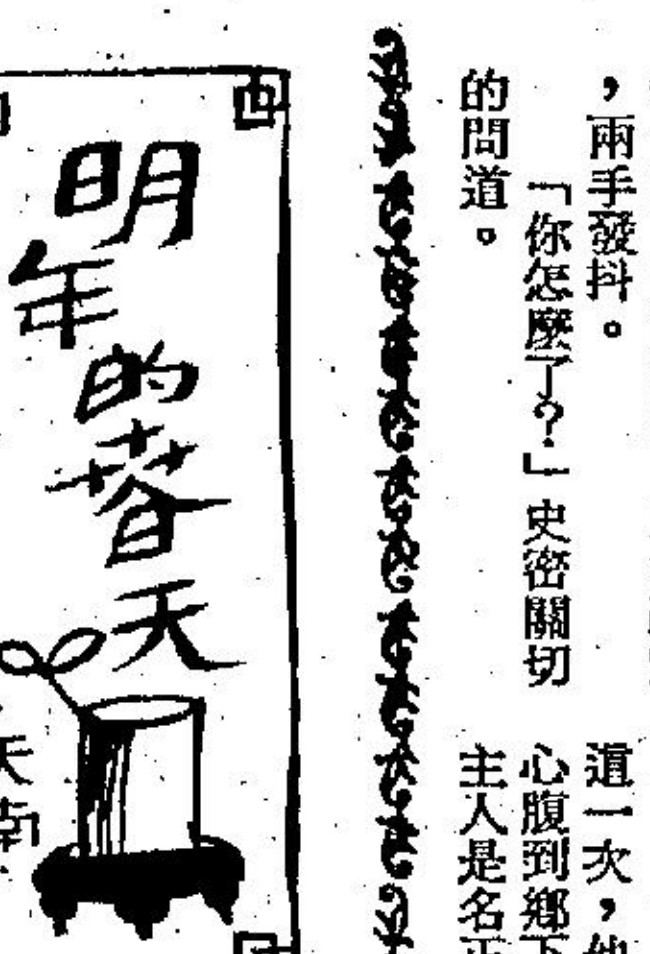 ，兩手發抖。
「你怎麼了？」史密關切
的問道。
這一次，他
心腹到鄉下
主人是名正
明年的春天
天南